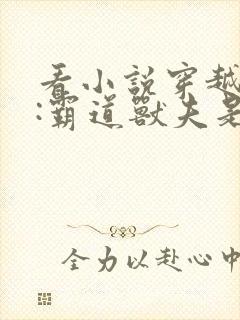 看小説穿越
:霸道獸夫是
全力以赴心中